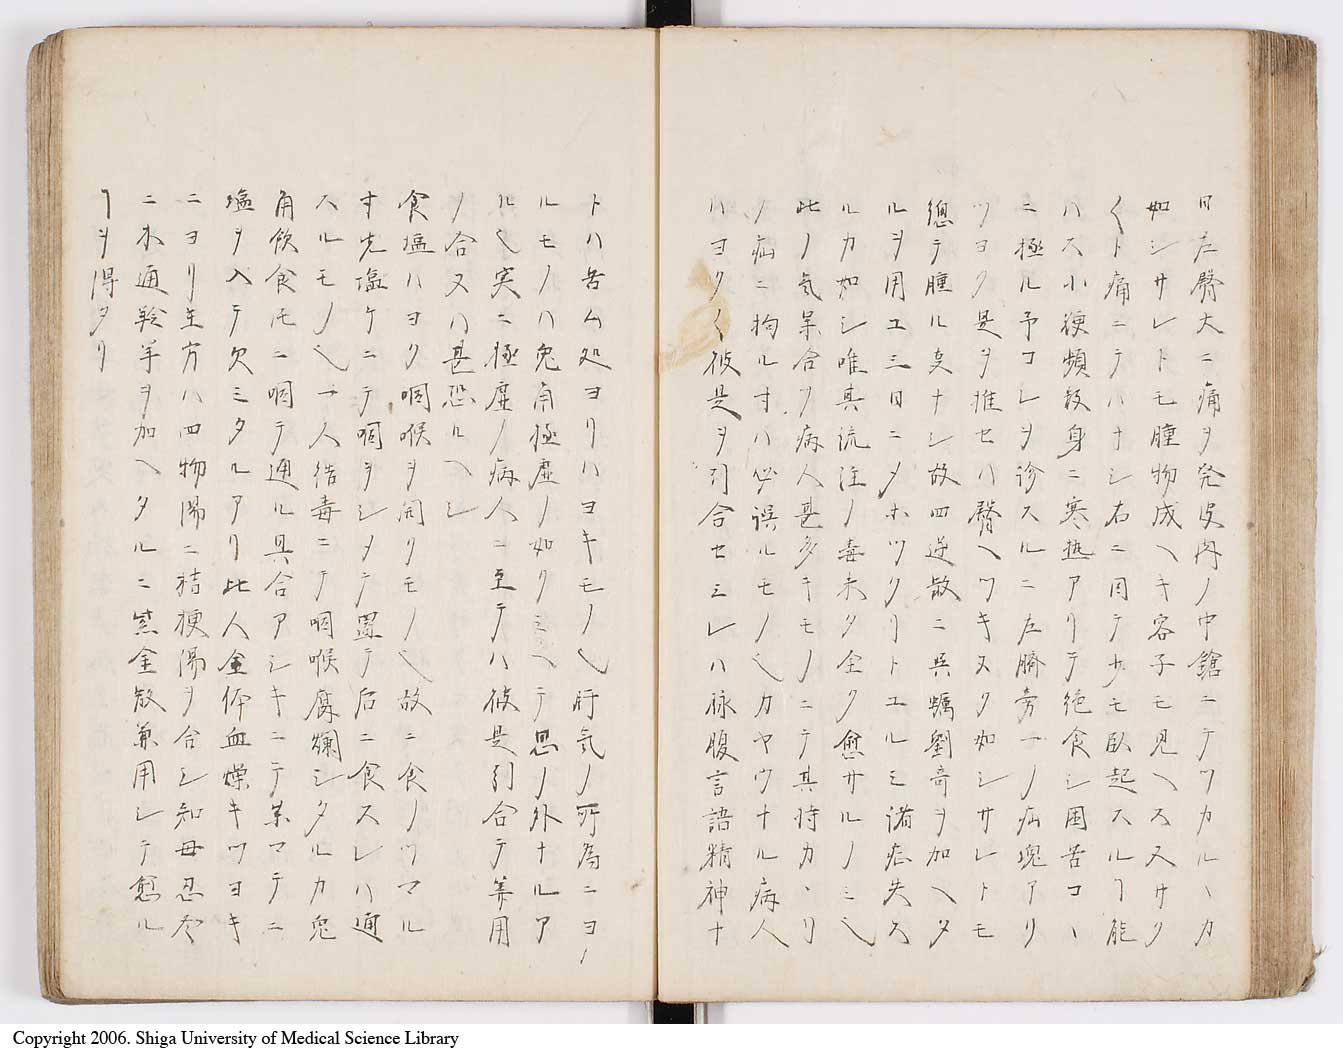 日左臀大ニ痛ヲ発皮内ノ中鎗ニテワカルヽカ
如シサレトモ腫物成ヘキ容子モ見ヘス又サク
〱ト痛ニテハナシ右ニ因テ少モ臥起スルヿ能
ハス小便頻数身ニ寒熱アリテ絶食シ困苦コヽ
ニ極ル予コレヲ診スルニ左臍旁一ノ疝塊アリ
ツヨク是ヲ推セハ臀ヘツキヌク如シサレトモ
總テ腫ル支ナシ故四逆散ニ呉蠣劉奇ヲ加ヘタ
ルヲ用ユ三日ニ〆ホツクリトユルミ諸症失ス
ルカ如シ唯其流注ノ毒未タ全ク愈サルノミ也
此ノ気杲合ヲ病人甚多キモノニテ其時カヽリ
ノ疝ニ拘ルオハ必誤ルモノ也カヤウナル病人
ハヨク〱彼是ヲ引合セミレハ脉腹言語精神ナ
トハ苦ム処ヨリハヨキモノ也肝気ノ所為ニヨノ
ルモノハ兔角極虚ノ如クミヘテ思ノ外ナルア
ル也実ニ極虚ノ病人ニ至テハ彼是引合テ等用
ノ合又ハ甚恐ルヘシ
食塩ハヨク咽喉ヲ同クモノ也故ニ食ノツマル
オ先塩ケニテ咽ヲシメテ置テ后ニ食スレハ通
スルモノ也一人結毒ニテ咽喉腐爛シタルカ兔
角飲食モニ咽テ通ル具合アシキニテ菓マテニ
塩ヲ入テ欠ミタルアリ此人全体血燥キツヨキ
ニヨリ主方ハ四物湯ニ桔梗湯ヲ合シ知母忍冬
ニ木通羚羊ヲ加ヘタルニ紫金散兼用シテ愈ル
ヿヲ得タリ
Copyright 2006. Shiga University of Medical Science Library